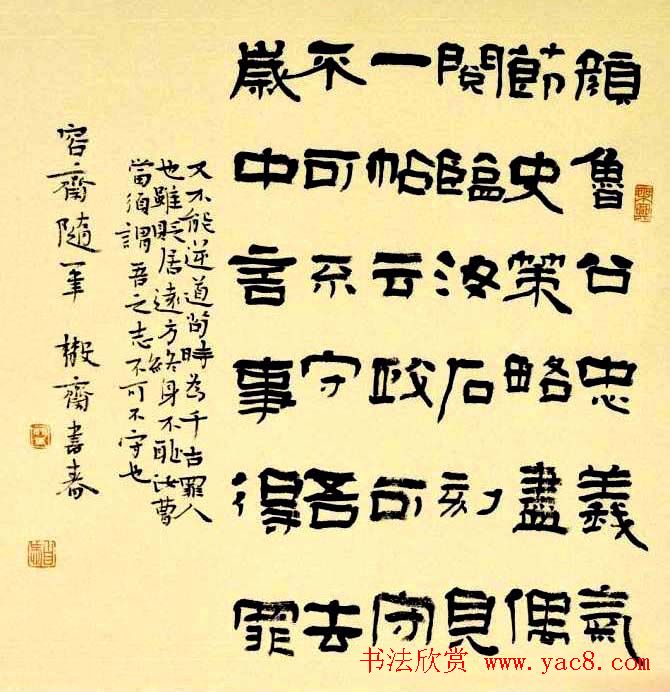 顏魯公忠義氣
節史策略盡偶
閱臨汝石刻見
一帖云政可守
不可不守吾去
歲中言事得罪
又不能逆道苟時為千古罪人
也雖貶居遠方終身不恥汝曹
當須謂吾之志不可不守也
容齋隨筆 齋書春
书法欣赏 www.yac8.com